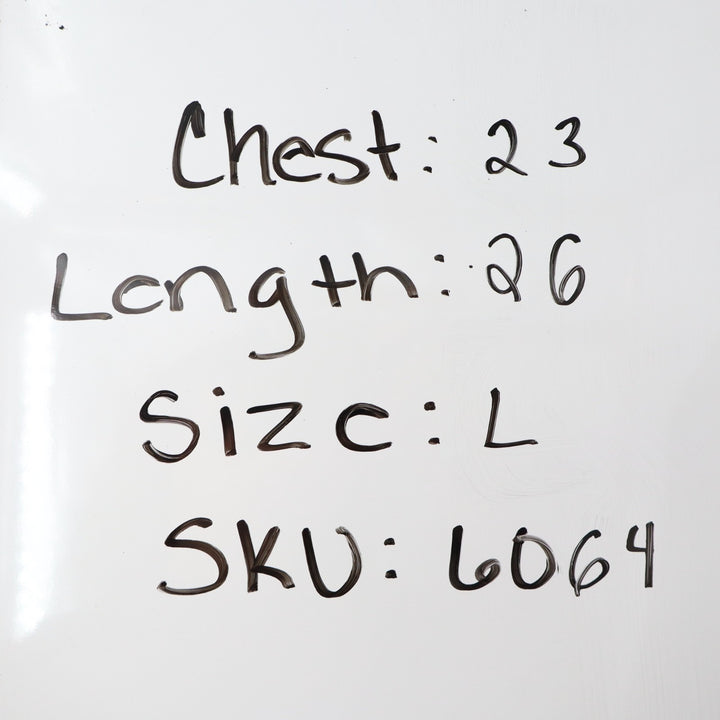 Chest: 23
Length: 26
Size: L
SKU: 6064